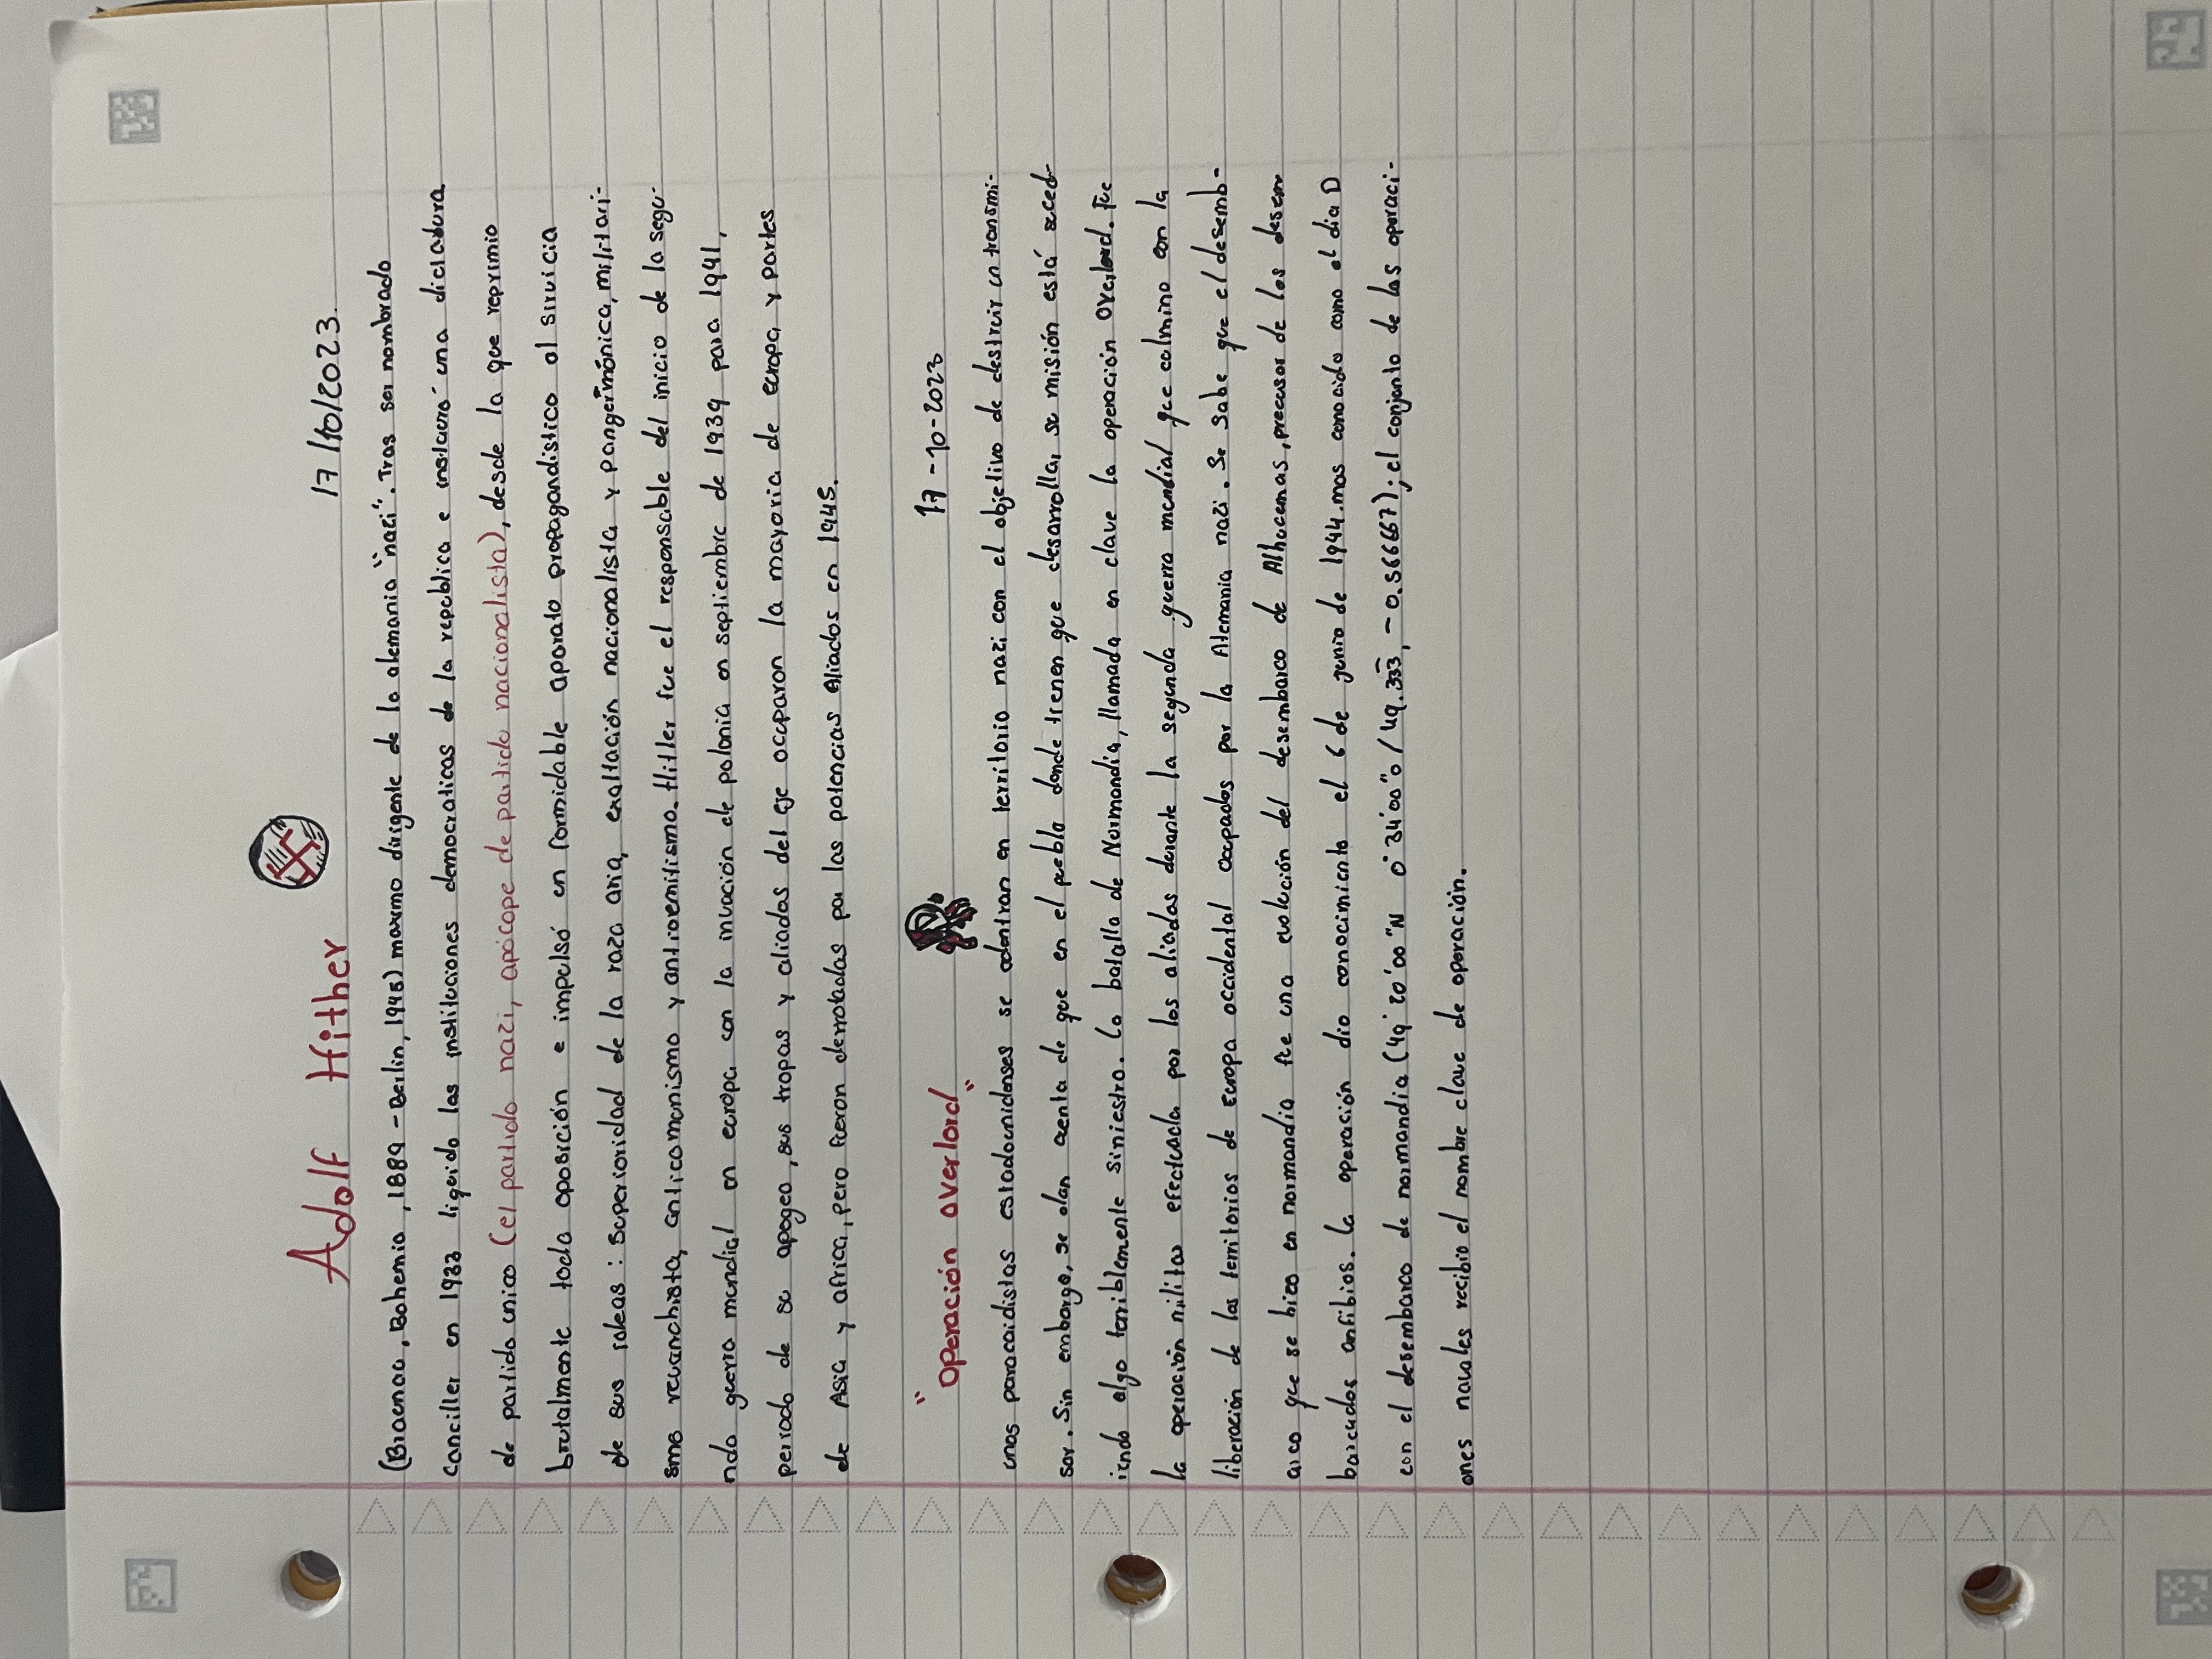 Adolf Hither 17/10/2023
(Braenao, Bohemia, 1889 - Berlin, 1945) maximo dirigente de la alemania "nazi". Tras ser nombrado
canciller en 1933 liquido las instituciones democraticas de la republica e instauró una dictadura
de partido unico (el partido nazi, apócope de partido nacionalista), desde la que reprimio
brutalmente toda oposición e impulsó un formidable aparato propagandistico al sirvicia
de sus ideas: superioridad de la raza aria, exaltación nacionalista y pangermónica, militari-
smo revanchista, anticomonismo y antisemitismo. Hitler fue el responsable del inicio de la segu-
nda guerra mundial en europa con la invación de polonia en septiembre de 1939 para 1941,
periodo de su apogeo, sus tropas y aliados del eje ocuparon la mayoria de europa, y partes
de Asia y africa, pero fueron derrotadas por las potencias aliados en 1945.
"Operación overlord" 17-10-2023
unos paracaidistas estadounidenses se adentran en territorio nazi con el objetivo de destruir un transmi-
sor. Sin embargo, se dan cuenta de que en el pueblo donde trenen que desarrolla, su misión está suced-
iendo algo terriblemente siniestro. La batalla de Normandia, llamada en clave la operación Overlord. Fue
la operación militar efectuada por los aliados durante la segunda guerra mundial que culmino con la
liberación de los territorios de Europa occidental ocupados por la Alemania nazi. Se sabe que el desemb-
arco que se hizo en normandia fue una evolución del desembarco de Alhucemas, precusor de los desem
barcados anfibios. La operación dio conocimiento el 6 de junio de 1944. mas conocido como el dia D
con el desembarco de normandia (49° 20'00"N 0°34'00"o / 49.333, - 0.566667); el conjunto de las operaci-
ones navales recibio el nombre clave de operación.